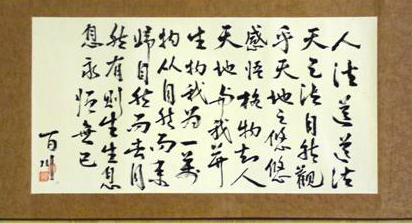 人法道道法
天之法自然觀
乎天地之悠悠
感悟格物知人
天地与我并
生物我為一萬
物从自然而来
歸自然而去自
然有則生生息
息永恒無已
百川